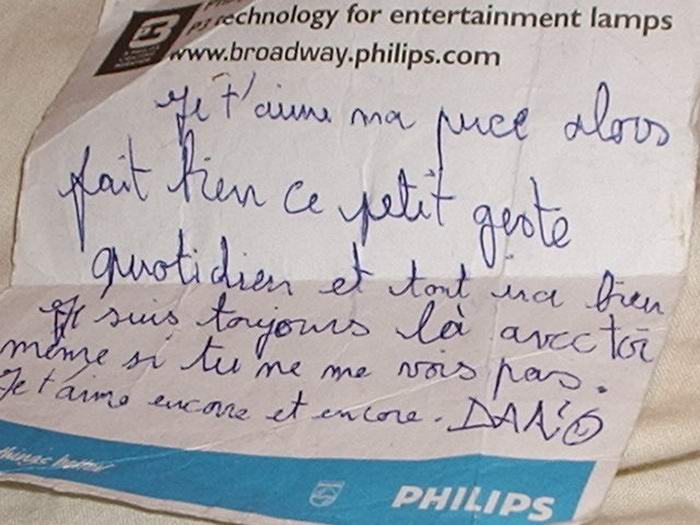 P3 technology for entertainment lamps
www.broadway.philips.com
Je t'aime ma puce alors
fait bien ce petit geste
quotidien et tout ira bien
Je suis toujours là avec toi
même si tu ne me vois pas.
Je t'aime encore et encore.
PHILIPS